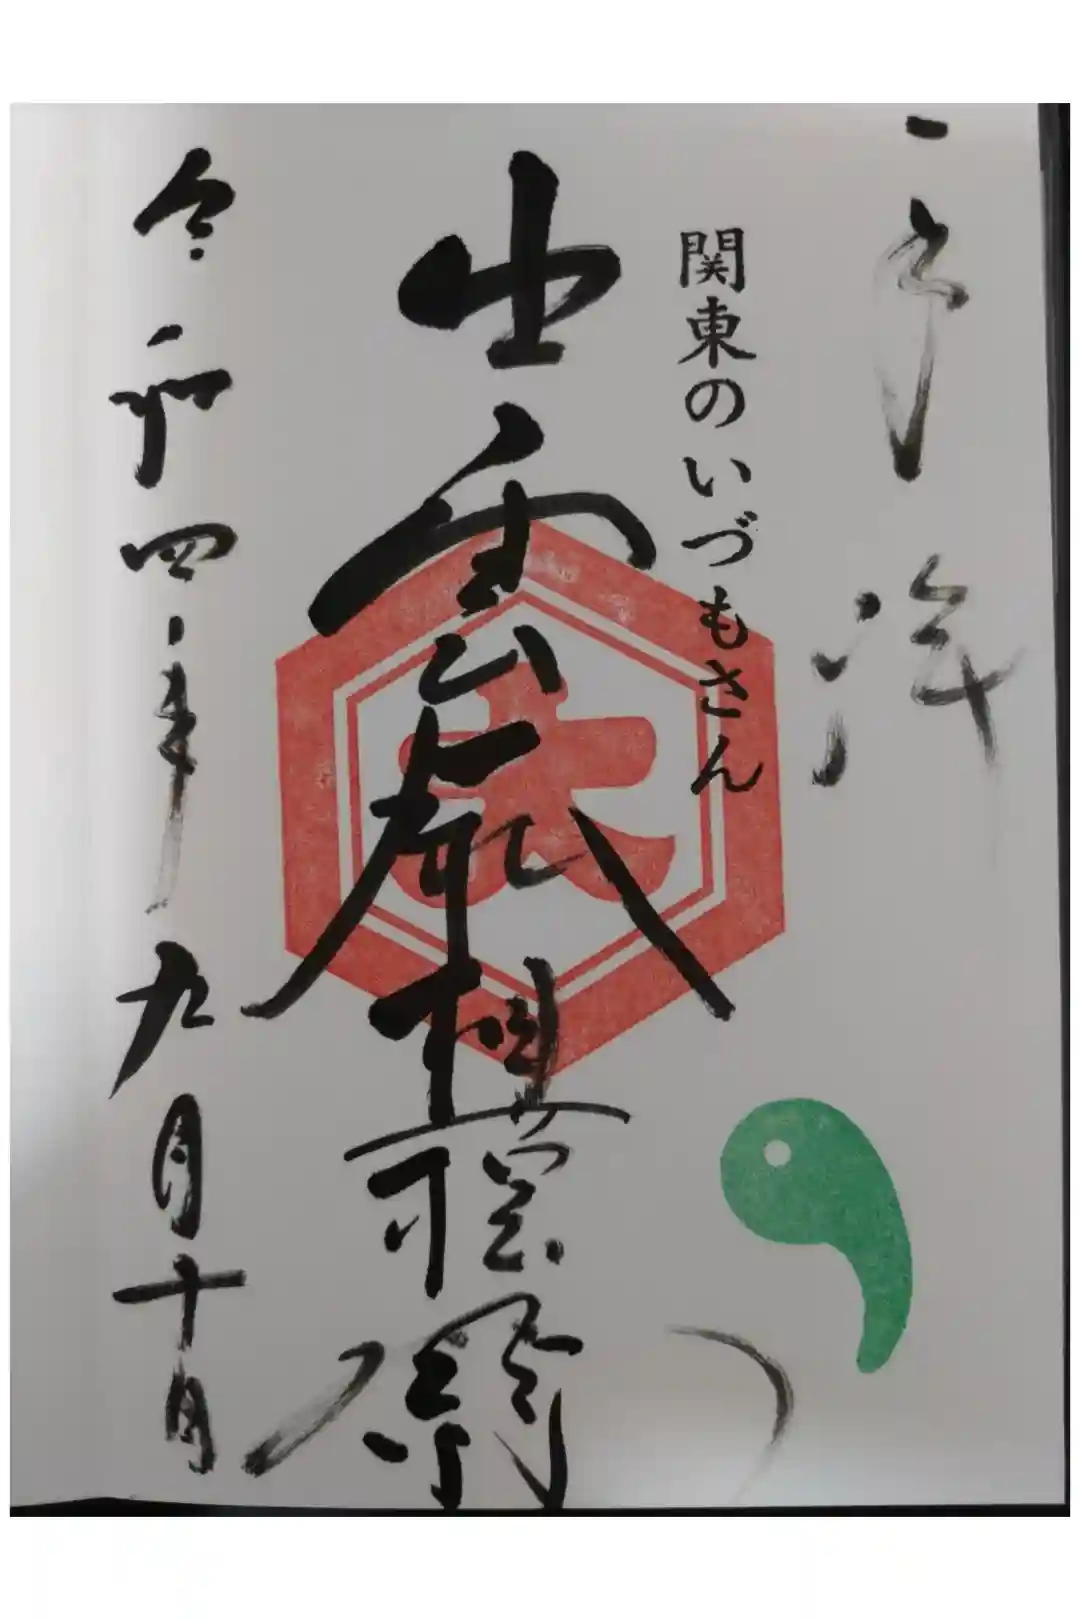 関東のいづもさん
出雲大社相模分祠
大
令和四年九月十日